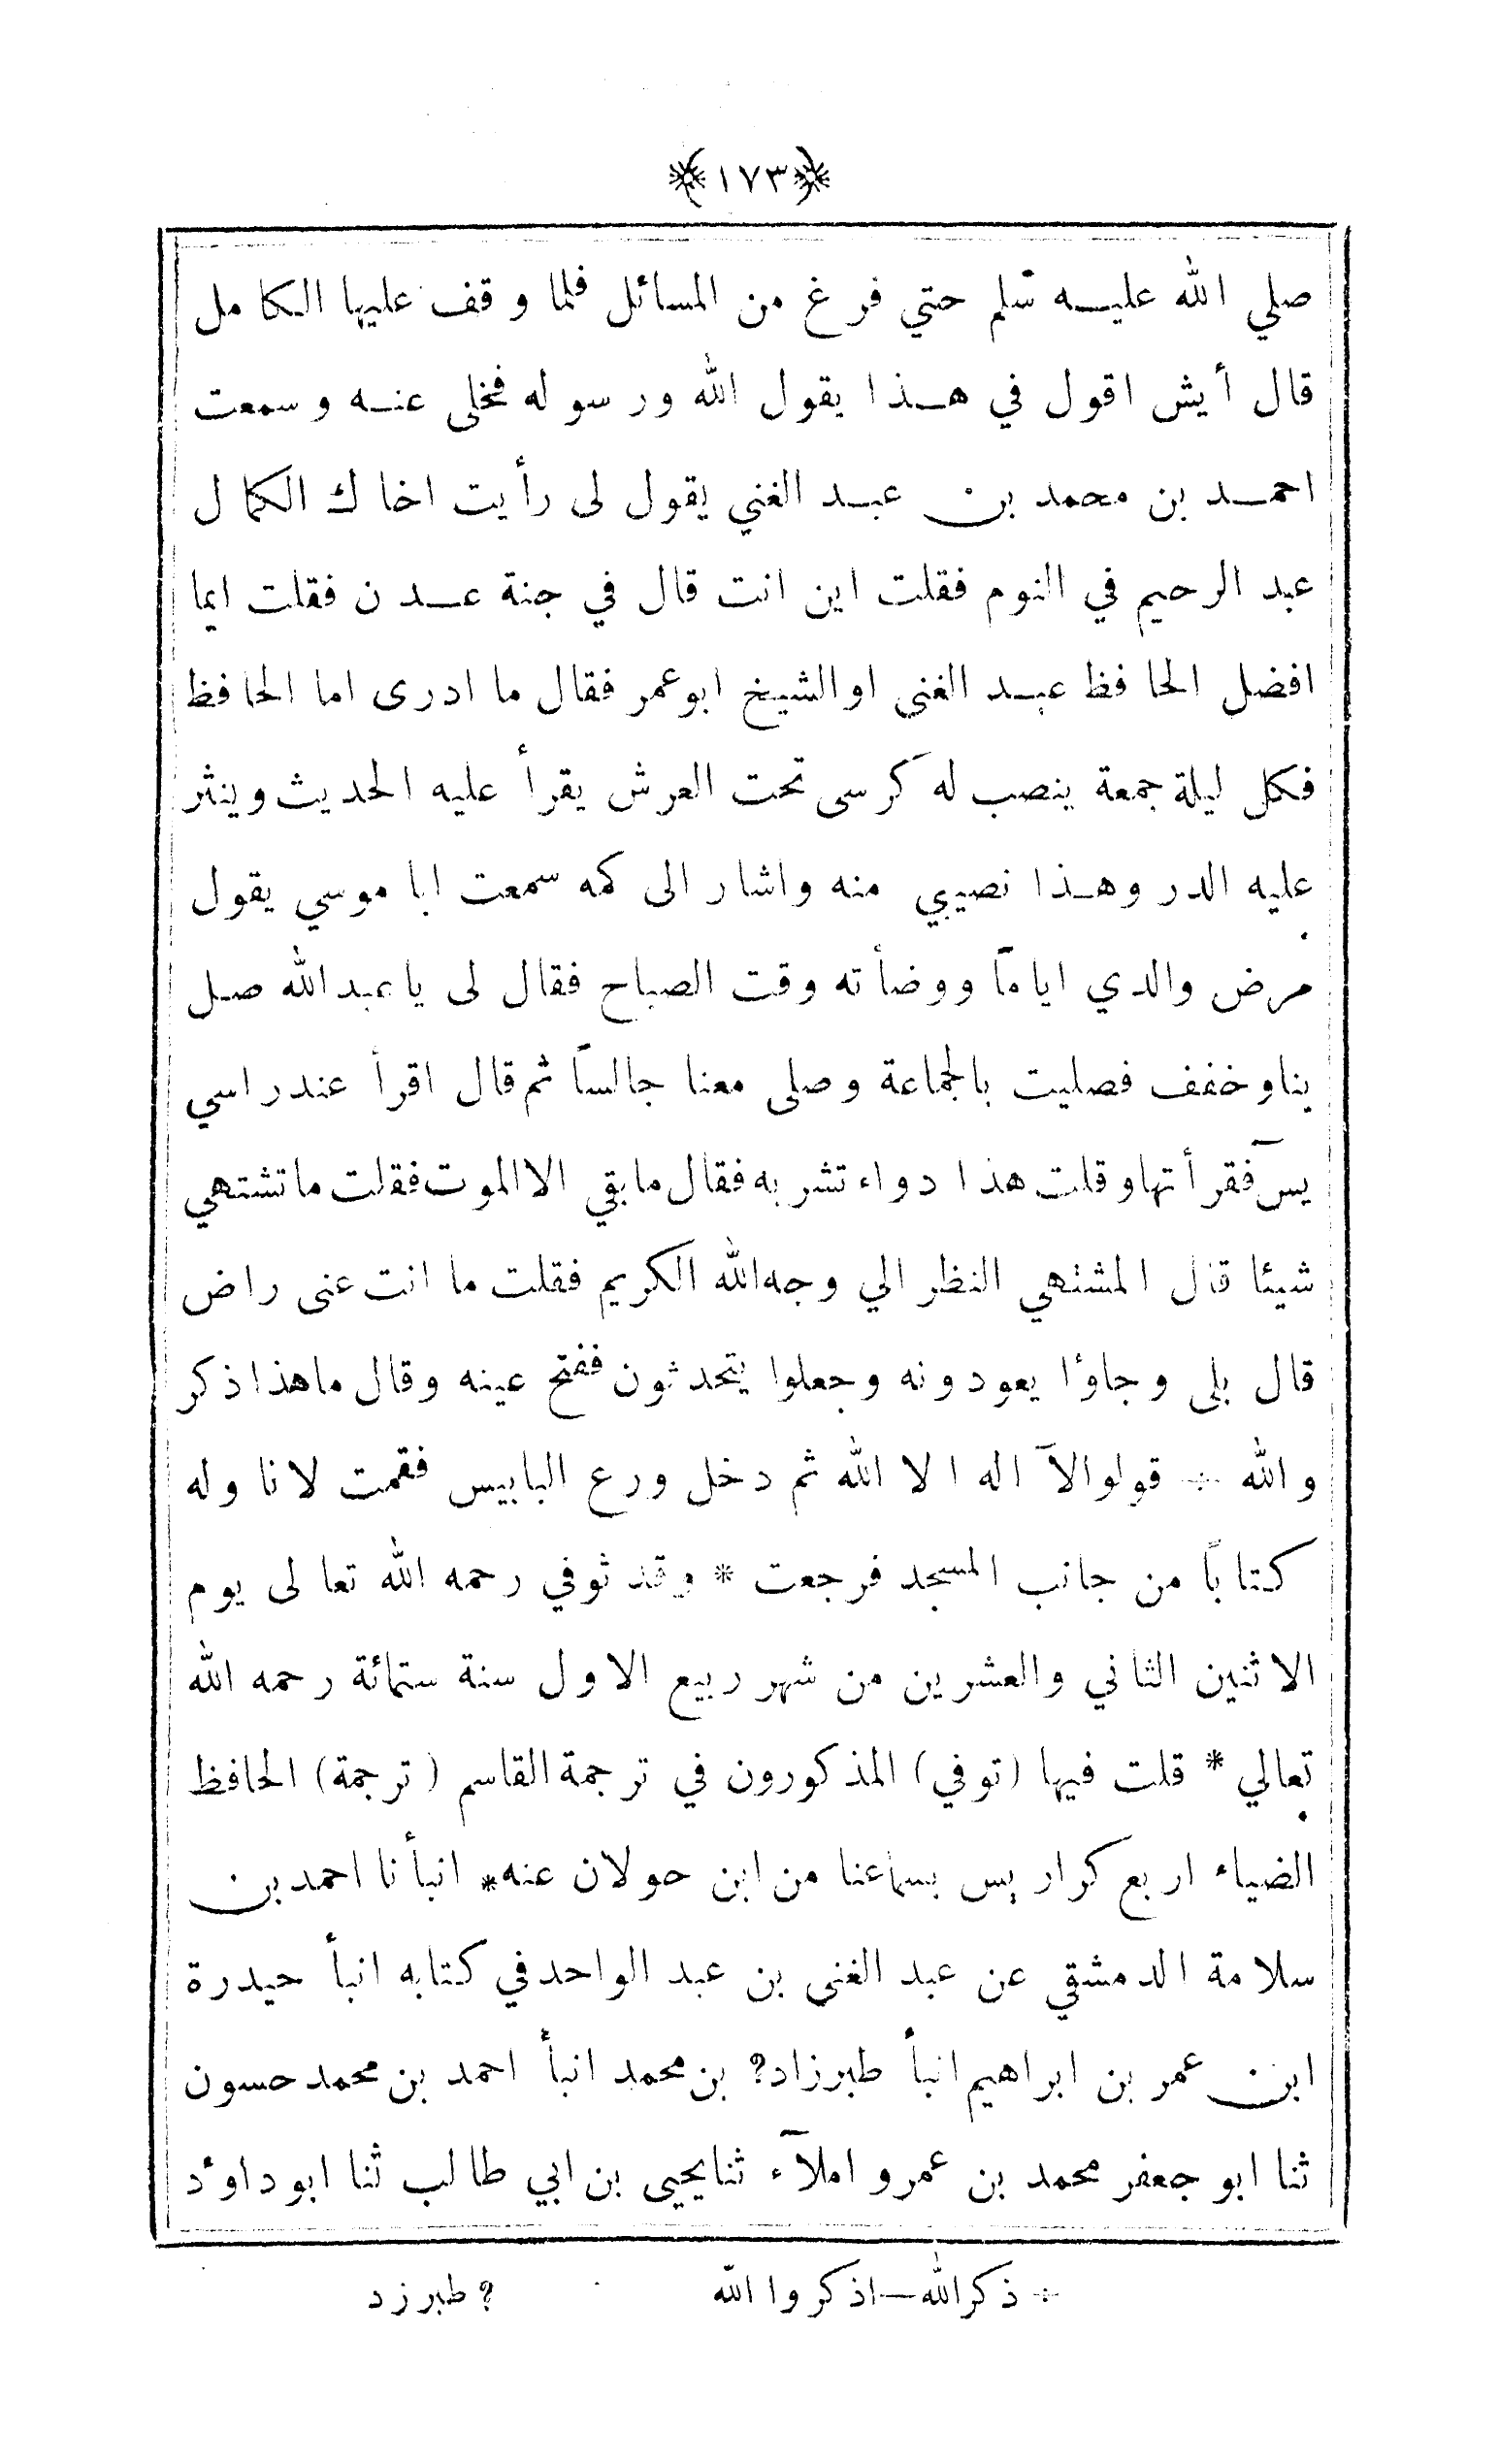 ﴿١٧٣﴾
صلي الله عليه سّلم حتي فرغ من المسائل فلما وقف عليها الكامل
قال أيش اقول في هذا يقول الله ورسوله فخلى عنه وسمعت
احمد بن محمد بن عبد الغني يقول لى رأيت اخاك الكمال
عبد الرحيم في النوم فقلت اين انت قال في جنة عدن فقلت ايما
افضل الحافظ عبد الغنى او الشيخ ابو عمر فقال ما ادرى اما الحافظ
فكل ليلة جمعة ينصب له كرسى تحت العرش يقرأ عليه الحديث وينثر
عليه الدر وهذا نصيبي منه واشار الى كمه سمعت ابا موسي يقول
مرض والدي اياماً ووضأته وقت الصباح فقال لى يا عبد الله صل
بنا وخفف فصليت بالجماعة وصلى معنا جالساً ثم قال اقرأ عند راسي
يسۤ فقرأتها وقلت هذا دواء تشربه فقال ما بقي الا الموت فقلت ما تشتهي
شيئا قال المشتهي النظر الي وجه الله الكريم فقلت ما انت عنى راض
قال بلى وجاؤا يعودونه وجعلوا يتحدثون ففتح عينه وقال ما هذا ذكر
والله ÷ قولوا لآ اله الا الله ثم دخل ورع البابيس فقمت لانا وله
كتاباً من جانب المسجد فرجعت * وقد ثوفي رحمه الله تعالى يوم
الاثنين الثاني والعشرين من شهر ربيع الاول سنة ستمائة رحمه الله
تعالي * قلت فيها (توفي) المذكورون في ترجمة القاسم (ترجمة) الحافظ
الضياء اربع كراريس بسماعنا من ابن حولان عنه* انبأنا احمد بن
سلامة الدمشقي عن عبد الغنى بن عبد الواحد في كتابه انبأ حيدرة
ابن عمر بن ابراهيم انبأ طبرزاد؟ بن محمد انبأ احمد بن محمد حسون
ثنا ابو جعفر محمد بن عمرو املآء ثنا يحيى بن ابي طالب ثنا ابو داوٴد
÷ ذكر الله — اذكروا الله ؟ طبرزد